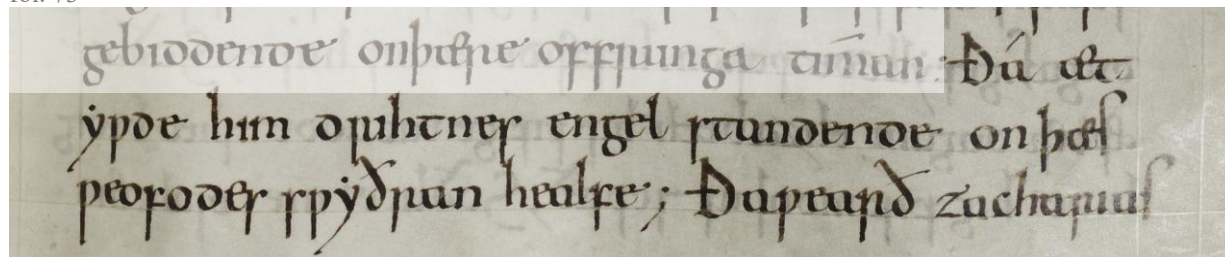 gebiddende onþære offrunga timan. Ðá æt
ẏƿde him drihtnes engel standende on þæs
ƿeofodes sƿẏðran healfe; Ðaƿearð zacharias